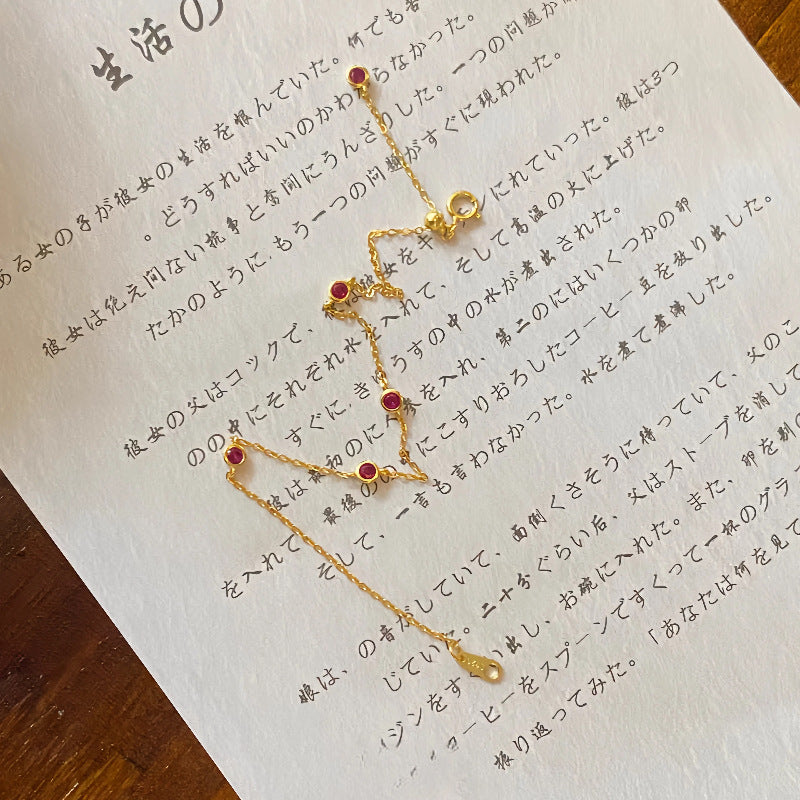 生活の
ある女の子が彼女の生活を恨んでいた。何でも
。どうすればいいのかわ らなかった。
彼女は絶え间ない抗争と奋闘にうんざりした。一つの问题が
たかのように、もう一つの问题がすぐに现われた。
彼女の父はコックで、 は彼女をキ ンにれていった。彼は3つ
のの中にそれぞれ水 入れて、そして高温の火に上げた。
すぐに、き うすの中の水が煮出された。
彼は最初のに 参を入れ、第二のにはいくつかの卵
を入れて 最後の にこすりおろしたコーヒー豆を放り出した。
そして、一言も言わなかった。水を煮て煮沸した。
眼は、の音がしていて、面倒くさそうに待っていて、父のこ
じていた。二十分ぐらい后、父はストーブを消して
ジンをす い出し、お碗に入れた。また、卵を剥
コーヒーをスプーンですくって一杯のグラ
振り返ってみた。「あなたは何を見て